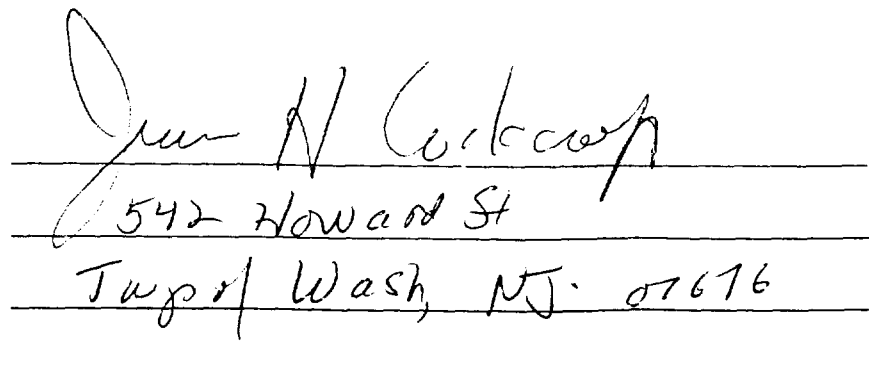 H
542 Howard St
Twp of Wash, NJ. 07676